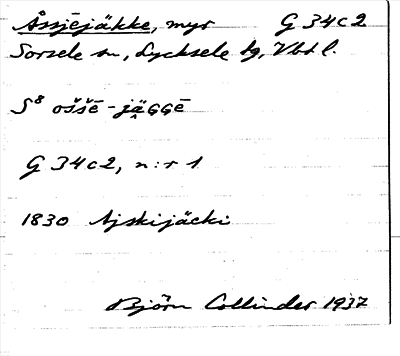 Åssjejäkke, myr G 34c2
Sorsele sn, Lycksele lg, Vbd l.
S8 oššē - jä̭GGē
G 34c2, n:r 1
1830 Ajskijäcki
Björn Collinder 1937